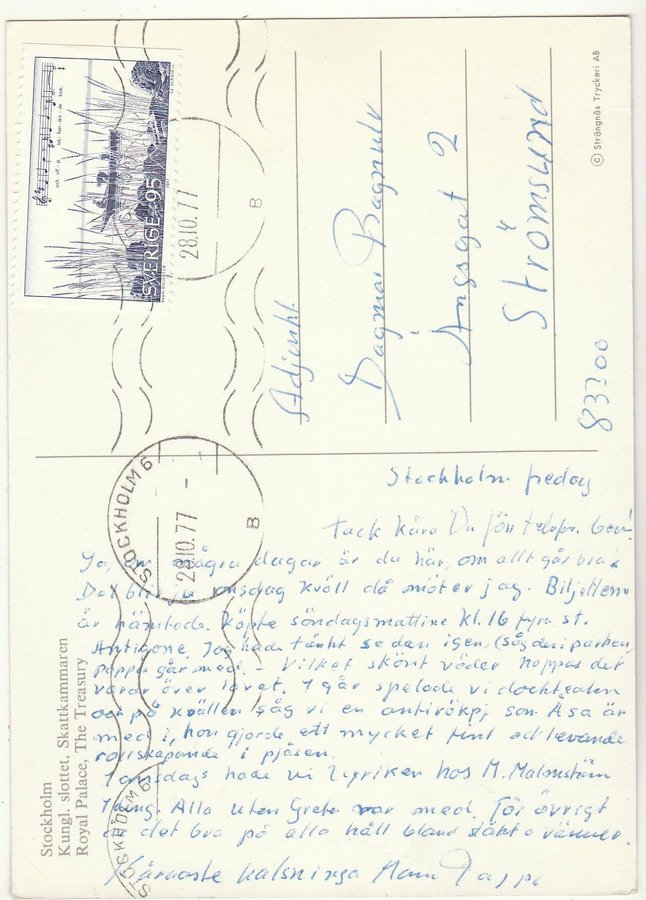 Stockholm fredag
Tack kära Du för
Ja, om några dagar är du här, om allt går bra.
Det blir ju onsdag kväll då möter jag. Biljetterna
är hämtade. Köpte söndagsmatiné kl. 16 fyra st.
Antigone. Jag hade tänkt se den igen, (såg den i parken)
pappa går med. – Vilket skönt väder hoppas det
varar över lovet. I går spelade vi
och på kvällen såg vi en som Åsa är
med i, hon gjorde ett mycket fint och levande
i pjäsen.
hade vi hos M. Malmström
Alla utom Greta var med. För övrigt
är det bra på alla håll bland släkt o vänner.
Käraste hälsningar Mam Pappa
Adjunkt
Dagmar Bagnulv
Ängsgat 2
Strömsund
83300
SVERIGE 95
STOCKHOLM 6
28.10.77
B
STOCKHOLM 6
28.10.77 -
B
STOCKHOLM 6
Stockholm
Kungl. slottet, Skattkammaren
Royal Palace, The Treasury
© Strängnäs Tryckeri AB